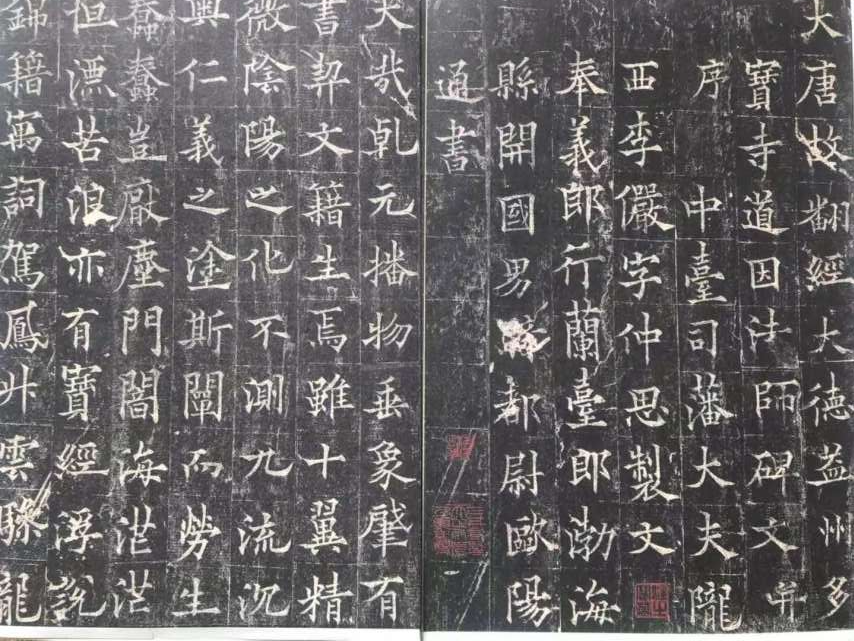 大唐故翻經大德益州多
寶寺道因法師碑文并
序 中臺司藩大夫隴
西李儼字仲思製文
奉義郎行蘭臺郎渤海
縣開國男騎都尉歐陽
通書
大哉乾元播物垂象肇有
書契文籍生焉雖十翼精
微陰陽之化不測九流沉
奧仁義之塗斯闡而勞生
蠢蠢豈厭塵門闇海茫茫
恒漂苦浪亦有寶經浮說
錦籍寓詞駕鳳升雲驂龍